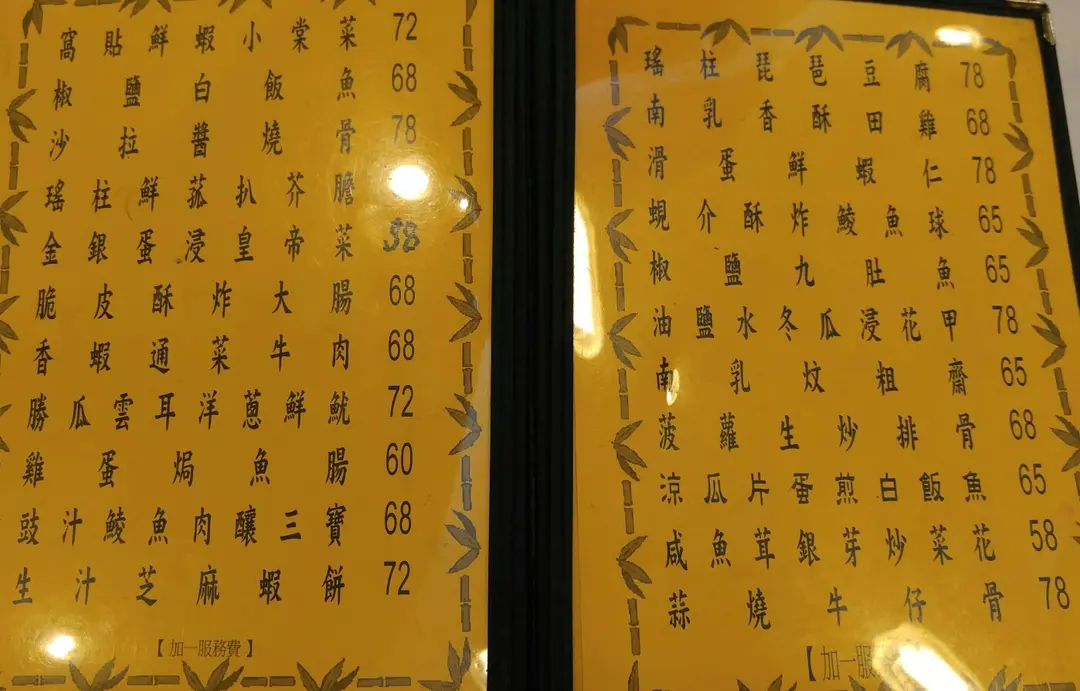 窩貼鮮蝦小棠菜 72
椒鹽白飯魚 68
沙拉醬燒骨 78
瑤柱鮮菰扒芥膽
金銀蛋浸皇帝菜 58
脆皮酥炸大腸 68
香蝦通菜牛肉 68
勝瓜雲耳洋蔥鮮魷 72
雞蛋焗魚腸 60
豉汁鯪魚肉釀三寶 68
生汁芝麻蝦餅 72
【加一服務費】
瑤柱琵琶豆腐 78
南乳香酥田雞 68
滑蛋鮮蝦仁 78
蜆介酥炸鯪魚球 65
椒鹽九肚魚 65
油鹽水冬瓜浸花甲 78
南乳炆粗齋 65
菠蘿生炒排骨 68
涼瓜片蛋煎白飯魚 65
咸魚茸銀芽炒菜花 58
蒜燒牛仔骨 78
【加一服